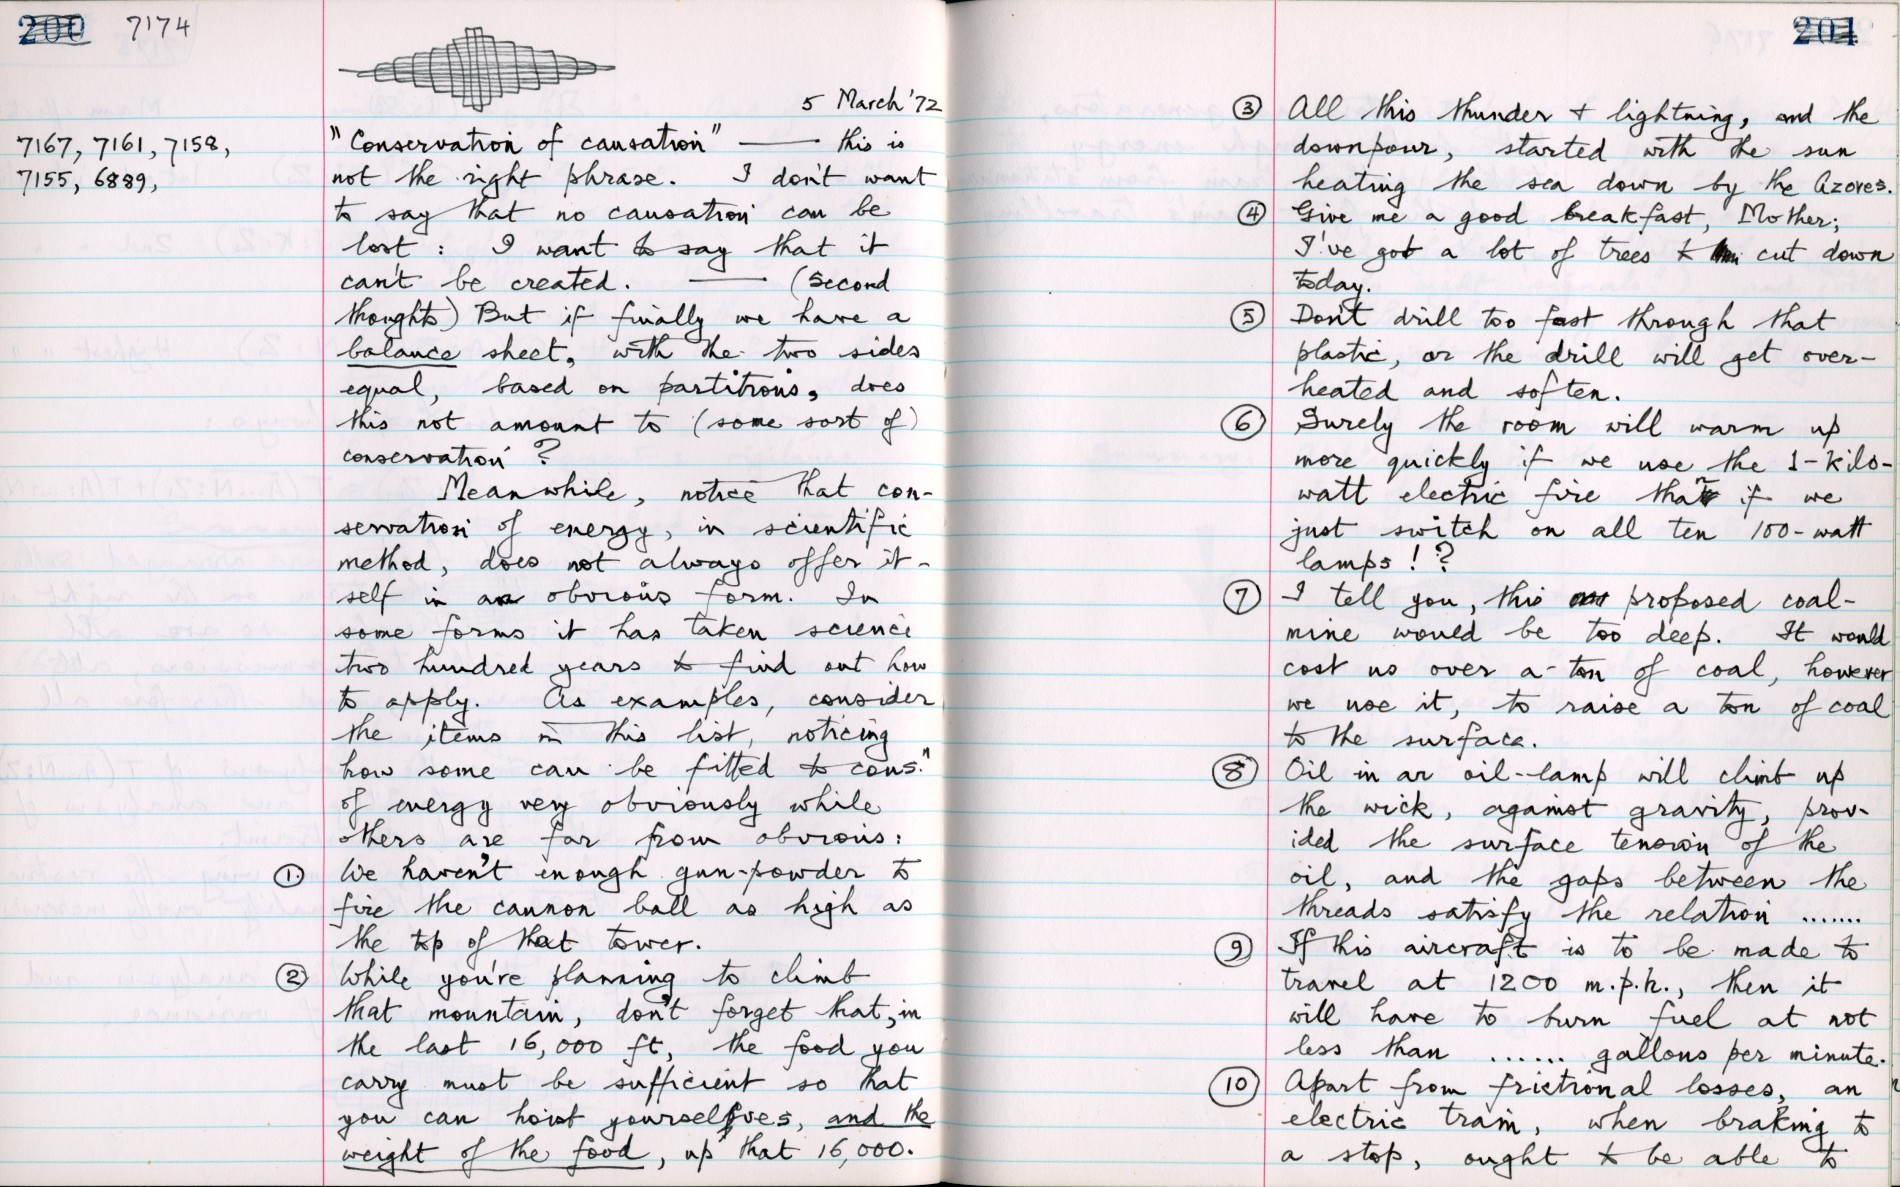 200 7174
5 March '72
7167, 7161, 7158,
7155, 6889,
"Conservation of causation" —— this is
not the right phrase. I don't want
to say that no causation can be
lost : I want to say that it
can't be created. —— (Second
thoughts) But if finally we have a
balance sheet, with the two sides
equal, based on partitions, does
this not amount to (some sort of)
conservation ?
Meanwhile, notice that con-
servation of energy, in scientific
method, does not always offer it-
self in an obvious form. In
some forms it has taken science
two hundred years to find out how
to apply. As examples, consider
the items in this list, noticing
how some can be fitted to cons.n
of energy very obviously while
others are far from obvious :
① We haven't enough gun-powder to
fire the cannon ball as high as
the top of that tower.
② While you're planning to climb
that mountain, don't forget that, in
the last 16,000 ft, the food you
carry must be sufficient so that
you can hoist yourselves, and the
weight of the food, up that 16,000.
201
③ All this thunder + lightning, and the
downpour, started with the sun
heating the sea down by the Azores.
④ Give me a good breakfast, Mother;
I've got a lot of trees to cut down
today.
⑤ Don't drill too fast through that
plastic, or the drill will get over-
heated and soften.
⑥ Surely the room will warm up
more quickly if we use the 1-kilo-
watt electric fire than if we
just switch on all ten 100-watt
lamps ! ?
⑦ I tell you, this proposed coal-
mine would be too deep. It would
cost us over a ton of coal, however
we use it, to raise a ton of coal
to the surface.
⑧ Oil in an oil-lamp will climb up
the wick, against gravity, prov-
ided the surface tension of the
oil, and the gaps between the
threads satisfy the relation .......
⑨ If this aircraft is to be made to
travel at 1200 m.p.h., then it
will have to burn fuel at not
less than ...... gallons per minute.
⑩ Apart from frictional losses, an
electric train, when braking to
a stop, ought to be able to